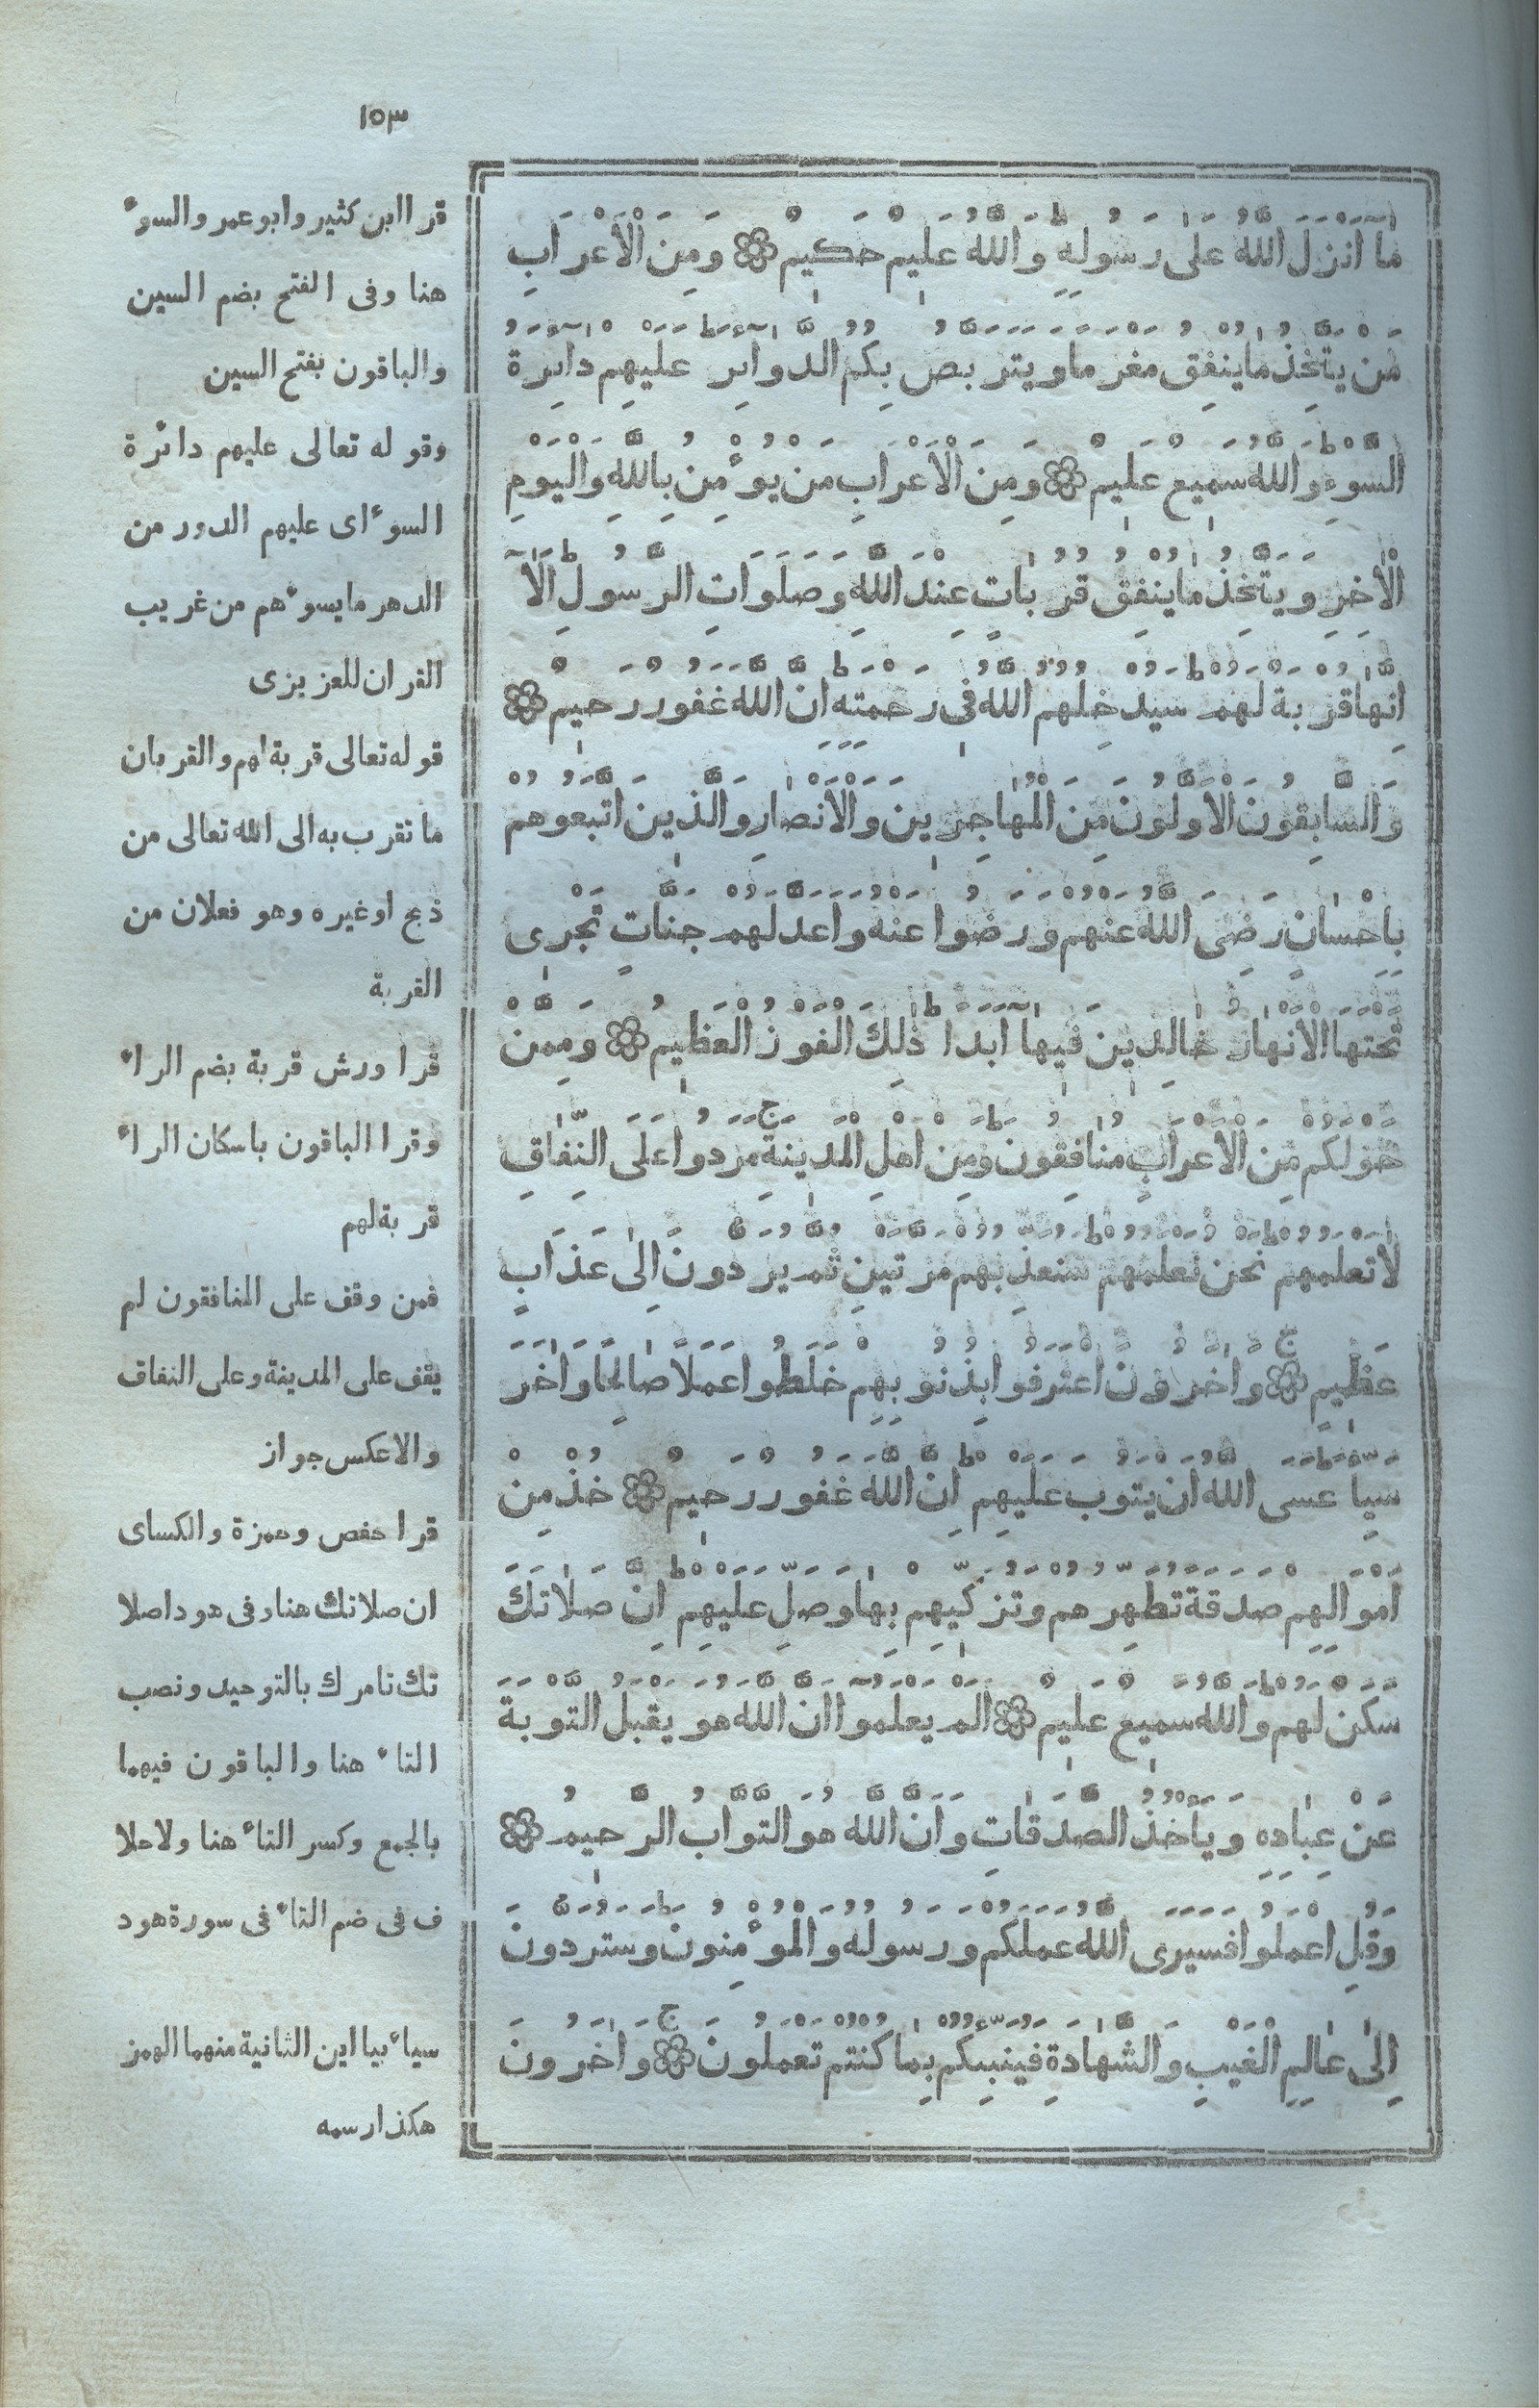 ١٥٣
مَا اَنْزَلَ اللّٰهُ عَلٰى رَسُولِهٖ وَاللّٰهُ عَلٖيمٌ حَكٖيمٌ وَمِنَ الْاَعْرَابِ
مَنْ يَتَّخِذُ مَا يُنْفِقُ مَغْرَمًا وَيَتَرَبَّصُ بِكُمُ الدَّوَاۤئِرَ عَلَيْهِمْ دَاۤئِرَةُ
السَّوْءِ وَاللّٰهُ سَمٖيعٌ عَلٖيمٌ وَمِنَ الْاَعْرَابِ مَنْ يُؤْمِنُ بِاللّٰهِ وَالْيَوْمِ
الْاٰخِرِ وَيَتَّخِذُ مَا يُنْفِقُ قُرُبَاتٍ عِنْدَ اللّٰهِ وَصَلَوَاتِ الرَّسُولِ اَلَاۤ
اِنَّهَا قُرْبَةٌ لَهُمْ سَيُدْخِلُهُمُ اللّٰهُ فٖى رَحْمَتِهٖ اِنَّ اللّٰهَ غَفُورٌ رَحٖيمٌ
وَالسَّابِقُونَ الْاَوَّلُونَ مِنَ الْمُهَاجِرٖينَ وَالْاَنْصَارِ وَالَّذٖينَ اتَّبَعُوهُمْ
بِاِحْسَانٍ رَضِىَ اللّٰهُ عَنْهُمْ وَرَضُوا عَنْهُ وَاَعَدَّ لَهُمْ جَنَّاتٍ تَجْرٖى
تَحْتَهَا الْاَنْهَارُ خَالِدٖينَ فٖيهَاۤ اَبَدًا ذٰلِكَ الْفَوْزُ الْعَظٖيمُ وَمِمَّنْ
حَوْلَكُمْ مِنَ الْاَعْرَابِ مُنَافِقُونَ وَمِنْ اَهْلِ الْمَدٖينَةِ مَرَدُوا عَلَى النِّفَاقِ
لَا تَعْلَمُهُمْ نَحْنُ نَعْلَمُهُمْ سَنُعَذِّبُهُمْ مَرَّتَيْنِ ثُمَّ يُرَدُّونَ اِلٰى عَذَابٍ
عَظٖيمٍ وَاٰخَرُونَ اعْتَرَفُوا بِذُنُوبِهِمْ خَلَطُوا عَمَلًا صَالِحًا وَاٰخَرَ
سَيِّئًا عَسَى اللّٰهُ اَنْ يَتُوبَ عَلَيْهِمْ اِنَّ اللّٰهَ غَفُورٌ رَحٖيمٌ خُذْ مِنْ
اَمْوَالِهِمْ صَدَقَةً تُطَهِّرُهُمْ وَتُزَكّٖيهِمْ بِهَا وَصَلِّ عَلَيْهِمْ اِنَّ صَلَاتَكَ
سَكَنٌ لَهُمْ وَاللّٰهُ سَمٖيعٌ عَلٖيمٌ اَلَمْ يَعْلَمُوۤا اَنَّ اللّٰهَ هُوَ يَقْبَلُ التَّوْبَةَ
عَنْ عِبَادِهٖ وَيَأْخُذُ الصَّدَقَاتِ وَاَنَّ اللّٰهَ هُوَ التَّوَّابُ الرَّحٖيمُ
وَقُلِ اعْمَلُوا فَسَيَرَى اللّٰهُ عَمَلَكُمْ وَرَسُولُهُ وَالْمُؤْمِنُونَ وَسَتُرَدُّونَ
اِلٰى عَالِمِ الْغَيْبِ وَالشَّهَادَةِ فَيُنَبِّئُكُمْ بِمَا كُنْتُمْ تَعْمَلُونَ وَاٰخَرُونَ
قرا ابن كثير وابو عمر والسوء
هنا وفى الفتح بضم السين
والباقون بفتح السين
وقوله تعالى عليهم دائرة
السوء اى عليهم الدور من
الدهر ما يسوءهم من غريب
القران للعزيزى
قوله تعالى قربة لهم والقربان
ما تقرب به الى الله تعالى من
ذبح او غيره وهو فعلان من
القربة
قرا ورش قربة بضم الراء
وقرا الباقون باسكان الراء
قربة لهم
فمن وقف على المنافقون لم
يقف على المدينة وعلى النفاق
والاعكس جواز
قرا حفص وحمزة والكساى
ان صلاتك هنا وفى هود اصلا
تك تامرك بالتوحيد ونصب
التاء هنا والباقون فيهما
بالجمع وكسر التاء هنا ولا خلا
ف فى ضم التاء فى سورة هود
سياء بيا اين الثانية منهما الهمز
هكذا رسمه